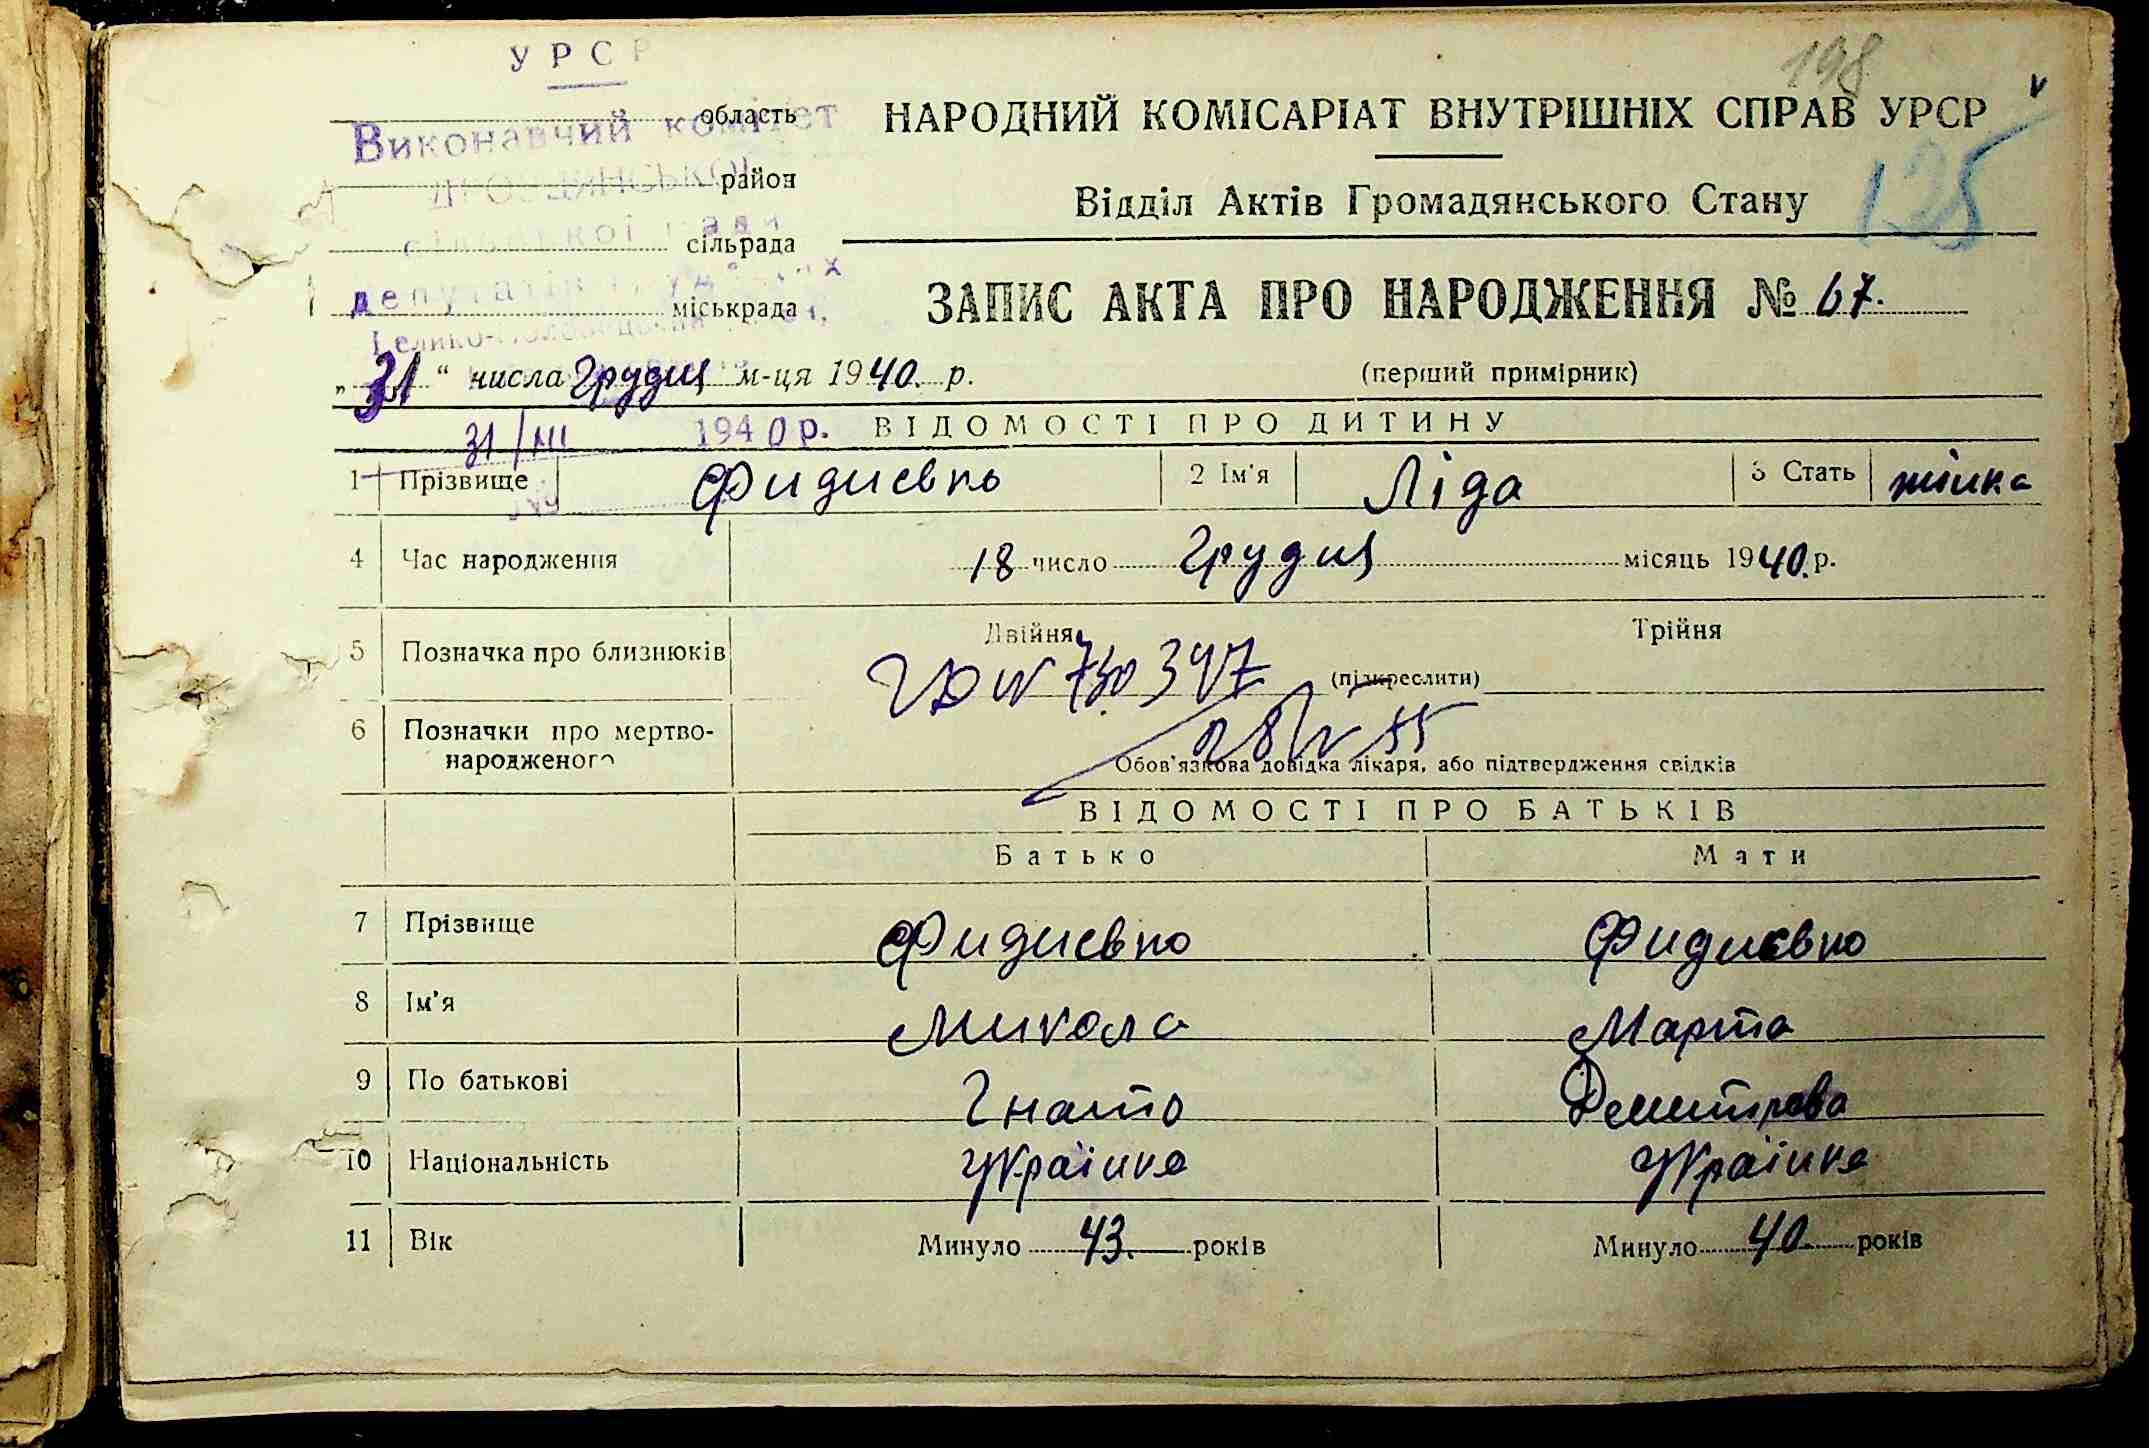 198
УРСР
область
Виконавчий комітет
НАРОДНИЙ КОМІСАРІАТ ВНУТРІШНІХ СПРАВ УРСР
125
район
Відділ Актів Громадянського Стану
сільської ради
сільрада
депутатів
міськрада
ЗАПИС АКТА ПРО НАРОДЖЕННЯ № 67.
„31“ числа Грудня м-ця 1940. р.
(перший примірник)
31/XII 1940 р.
ВІДОМОСТІ ПРО ДИТИНУ
1 Прізвище Фидиєвко 2 Ім'я Ліда 3 Стать жінка
4 Час народження 18 число Грудня місяць 1940. р.
5 Позначка про близнюків Двійня Трійня
730347 (підкреслити)
28/V 55
6 Позначки про мертвонародженого
Обов'язкова довідка лікаря, або підтвердження свідків
ВІДОМОСТІ ПРО БАТЬКІВ
Батько Мати
7 Прізвище Фидиєвко Фидиєвко
8 Ім'я Микола Марта
9 По батькові Гнато Демитрова
10 Національність Українка Українка
11 Вік Минуло 43. років Минуло 40. років